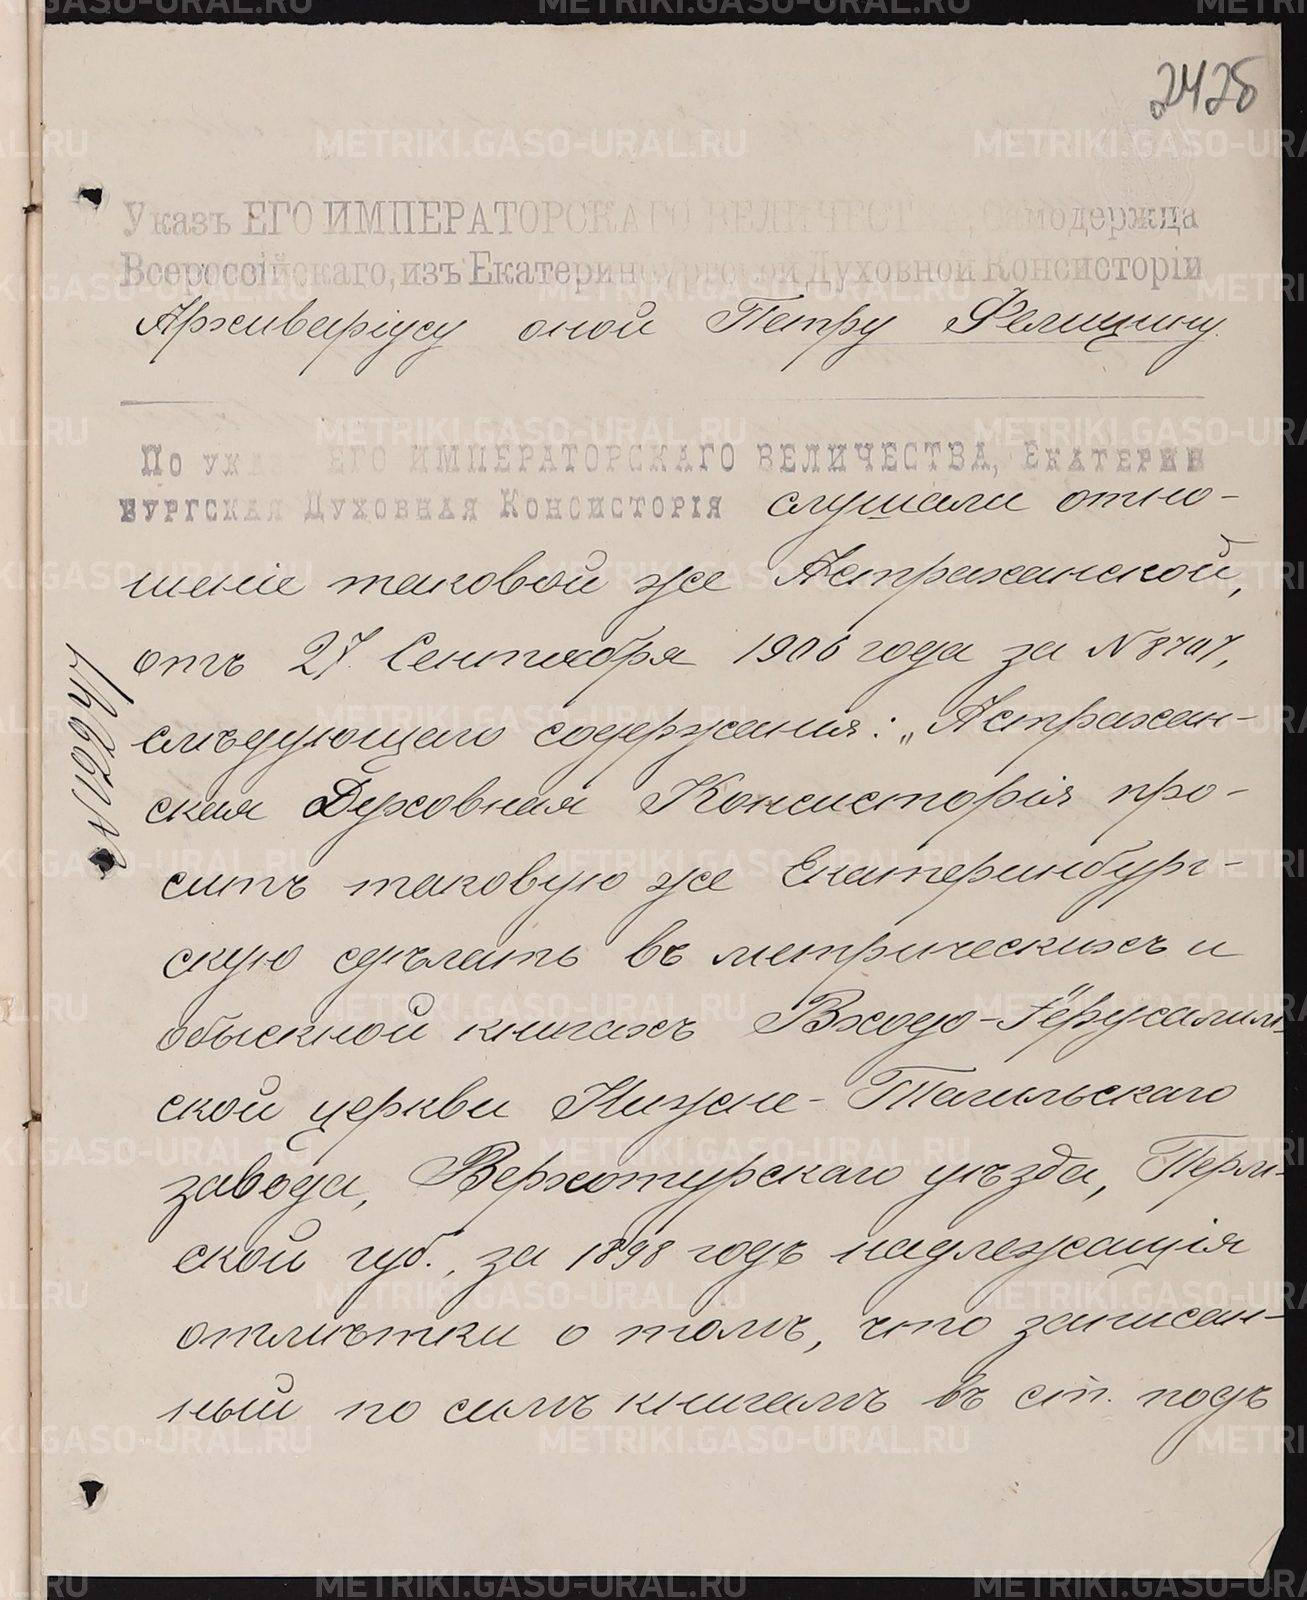 242б
Указъ ЕГО ИМПЕРАТОРСКАГО ВЕЛИЧЕСТВА, Самодержца
Всероссійскаго, изъ Екатеринбургской Духовной Консисторіи
Архиваріусу оной Петру Фелицину.
По указу ЕГО ИМПЕРАТОРСКАГО ВЕЛИЧЕСТВА, Екатерин
бургская Духовная Консисторія слушали отно-
шеніе таковой же Астраханской,
отъ 27 Сентября 1906 года за N 8707,
слѣдующаго содержанія: „Астрахан-
ская Духовная Консисторія про-
ситъ таковую же Екатеринбург-
скую сдѣлать въ метрическихъ и
обыскной книгахъ Входо-Іерусалим-
ской церкви Нижне-Тагильскаго
завода, Верхотурскаго уѣзда, Перм-
ской губ., за 1898 годъ надлежащія
отмѣтки о томъ, что записан-
ный по симъ книгамъ въ ст. подъ
N 12247
METRIKI.GASO-URAL.RU